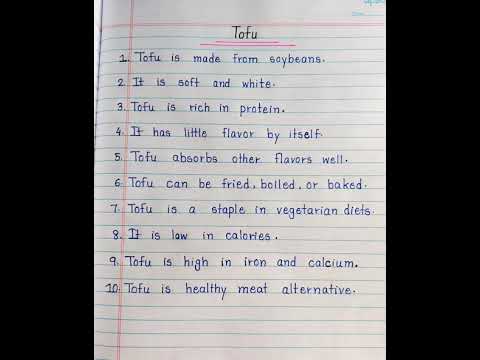 Tofu
1. Tofu is made from soybeans.
2. It is soft and white.
3. Tofu is rich in protein.
4. It has little flavor by itself.
5. Tofu absorbs other flavors well.
6. Tofu can be fried, boiled, or baked.
7. Tofu is a staple in vegetarian diets.
8. It is low in calories.
9. Tofu is high in iron and calcium.
10. Tofu is healthy meat alternative.